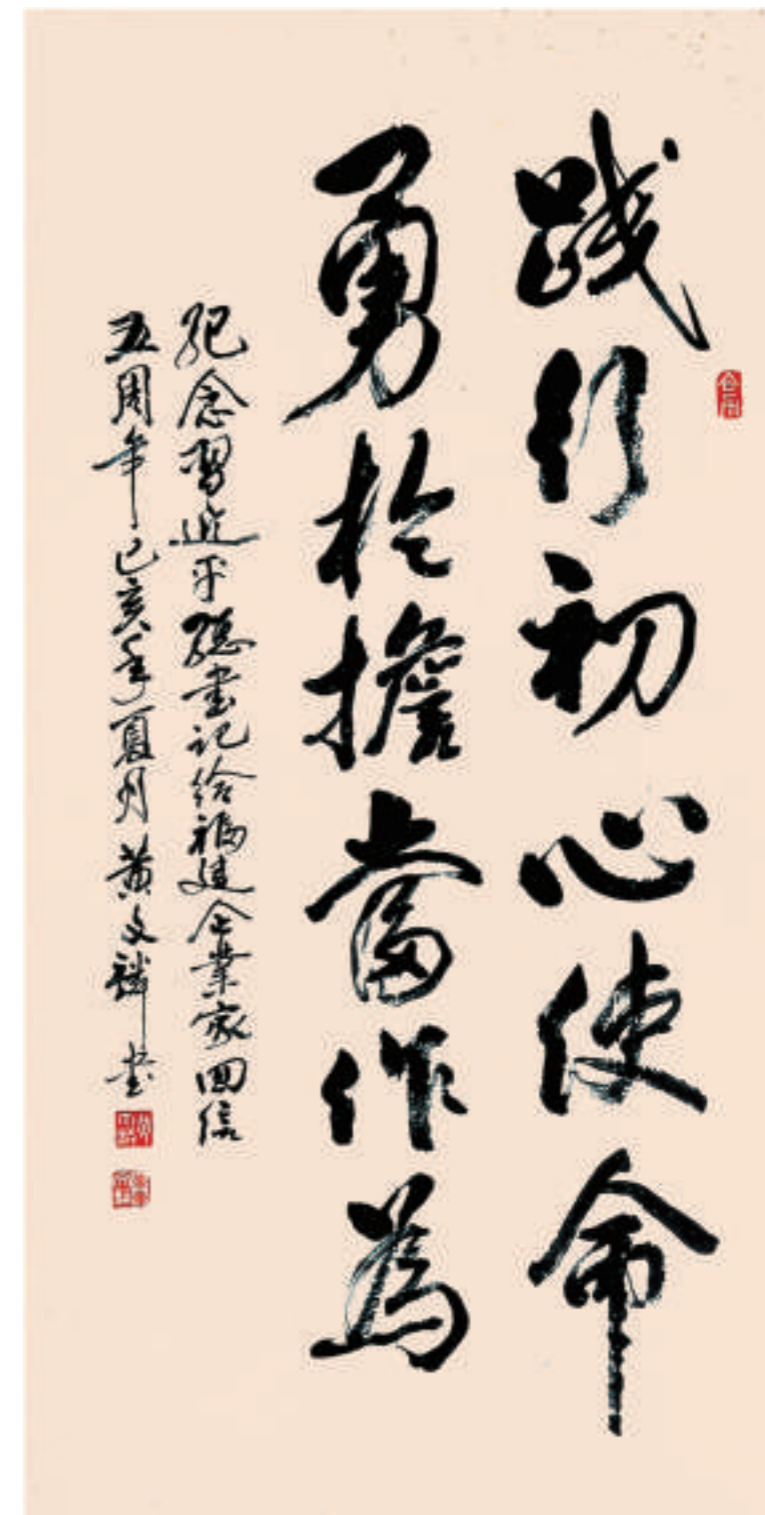 践行初心使命
勇於擔當作為
纪念習近平總書记给福建企業家回信
五周年己亥年夏月黄文麟書